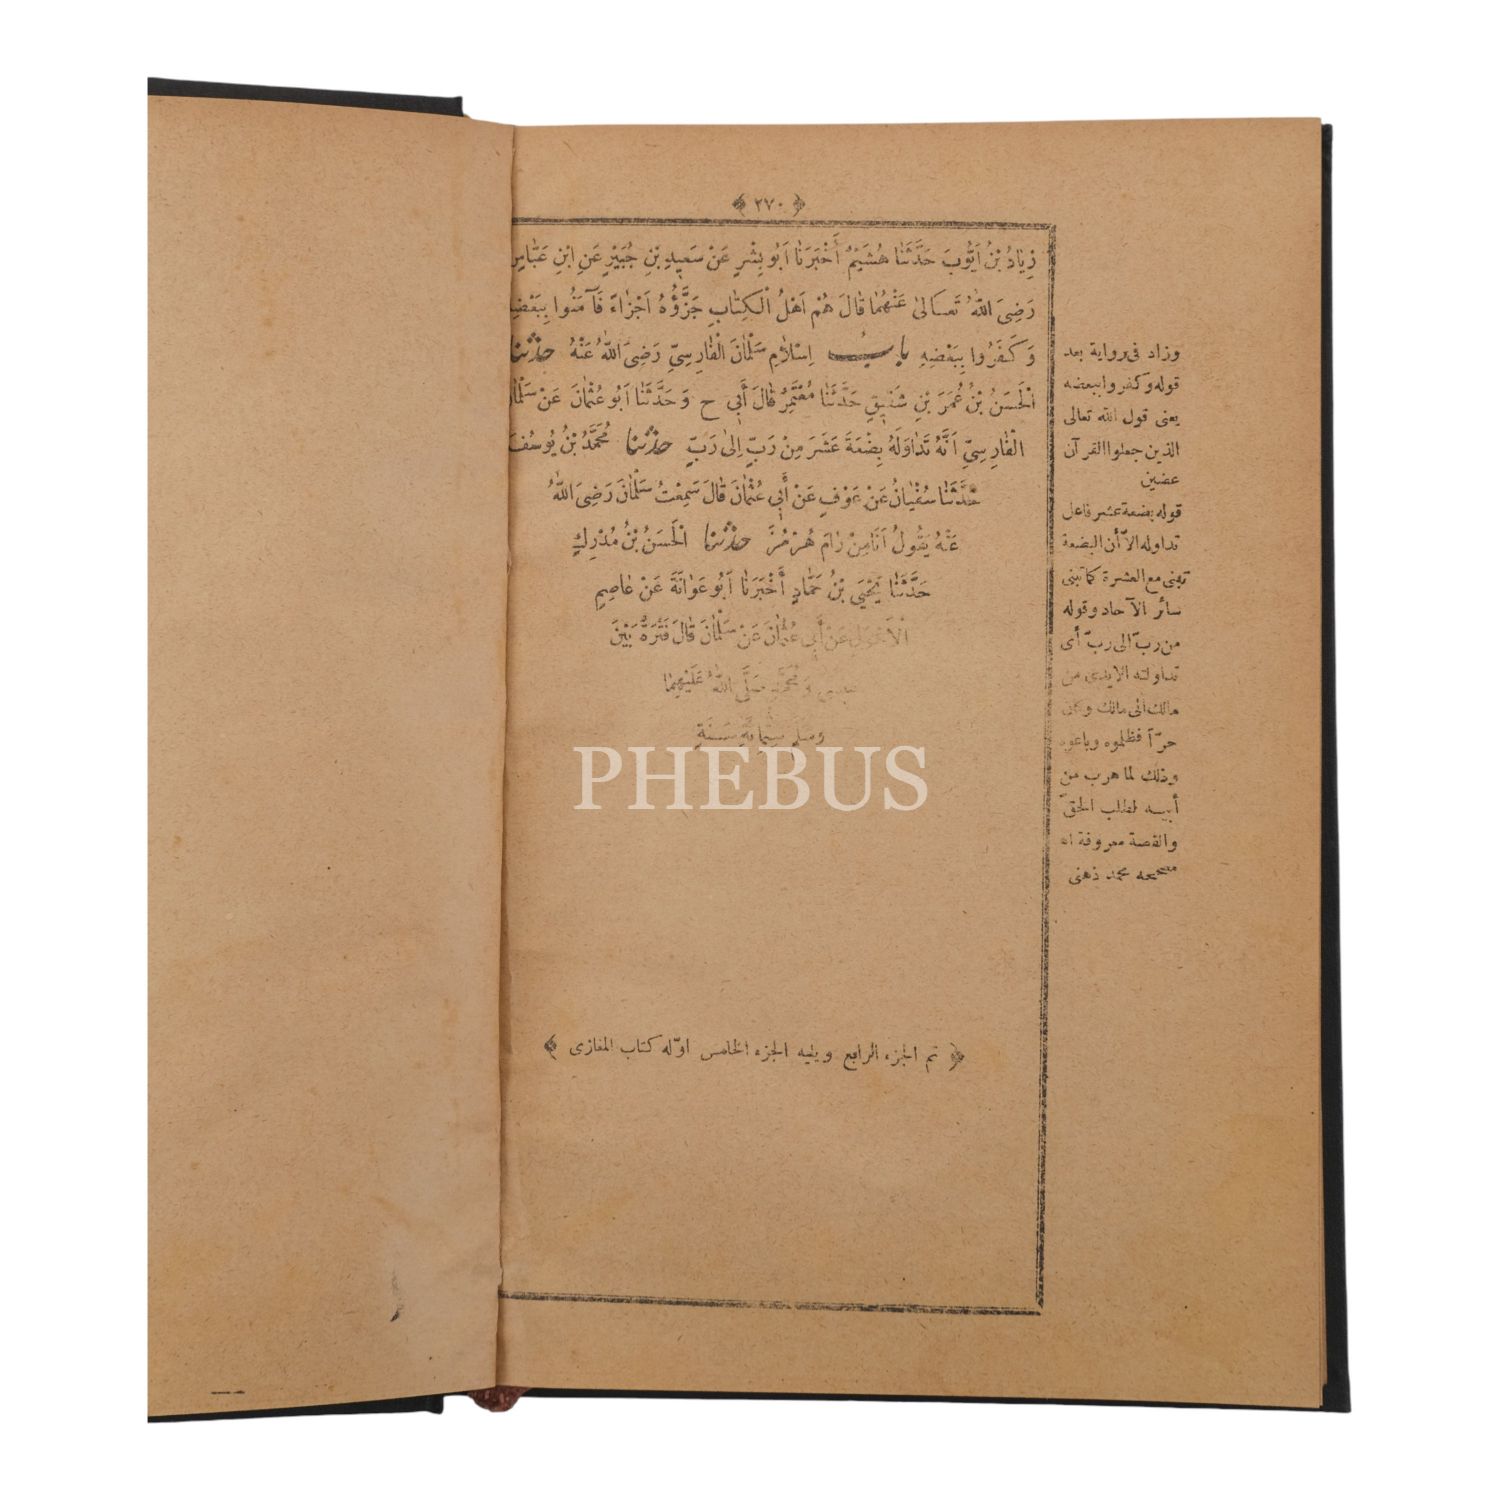 ﴿ ٢٧٠ ﴾
زِيَادُ بْنُ اَيُّوبَ حَدَّثَنَا هُشَيْمٌ أَخْبَرَنَا اَبُو بِشْرٍ عَنْ سَعِيدِ بْنِ جُبَيْرٍ عَنِ ابْنِ عَبَّاسٍ
رَضِىَ اللّٰهُ تَعَالىٰ عَنْهُمَا قَالَ هُمْ اَهْلُ الْكِتَابِ جَزَّؤُهُ اَجْزَاءً فَآمَنُوا بِبَعْضِهِ
وَكَفَرُوا بِبَعْضِهِ بابُ اِسْلَامِ سَلْمَانَ الْفَارِسِىِّ رَضِىَ اللّٰهُ عَنْهُ حَدَّثَنَا
الْحَسَنُ بْنُ عُمَرَ بْنِ شَقِيقٍ حَدَّثَنَا مُعْتَمِرٌ قَالَ أَبِى ح وَحَدَّثَنَا اَبُو عُثْمَانَ عَنْ سَلْمَانَ
الْفَارِسِىِّ اَنَّهُ تَدَاوَلَهُ بِضْعَةَ عَشَرَ مِنْ رَبٍّ اِلىٰ رَبٍّ حَدَّثَنَا مُحَمَّدُ بْنُ يُوسُفَ
حَدَّثَنَا سُفْيَانُ عَنْ عَوْفٍ عَنْ أَبِى عُثْمَانَ قَالَ سَمِعْتُ سَلْمَانَ رَضِىَ اللّٰهُ
عَنْهُ يَقُولُ اَنَا مِنْ رَامَ هُرْمُزَ حَدَّثَنَا الْحَسَنُ بْنُ مُدْرِكٍ
حَدَّثَنَا يَحْيَى بْنُ حَمَّادٍ أَخْبَرَنَا اَبُو عَوَانَةَ عَنْ عَاصِمٍ
الْاَحْوَلِ عَنْ أَبِى عُثْمَانَ عَنْ سَلْمَانَ قَالَ فَتْرَةٌ بَيْنَ
عِيسَى وَمُحَمَّدٍ صَلَّى اللّٰهُ عَلَيْهِمَا
وَسَلَّمَ سِتُّمِائَةِ سَنَةٍ
وزاد فى رواية بعد
قوله وكفروا ببعضه
يعنى قول الله تعالى
الذين جعلوا القرآن
عضين
قوله بضعة عشر فاعل
تداوله الاّ أن البضعة
تبنى مع العشرة كما تبنى
سائر الآحاد وقوله
من ربّ الى ربّ أى
تداولته الايدى من
مالك الى مالك وكان
حرّا فظلموه وباعوه
وذلك لما هرب من
أبيه لطلب الحقّ
والقصة معروفة اه
مصححه محمد ذهنى
﴿ تم الجزء الرابع ويليه الجزء الخامس اوّله كتاب المغازى ﴾
PHEBUS